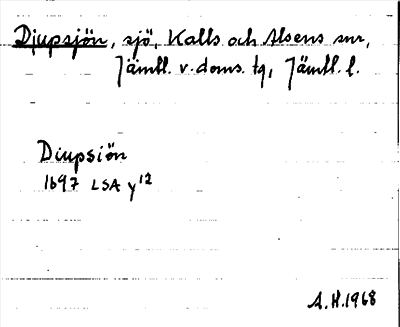 Djupsjön, sjö, Kalls och Alsens snr,
Jämtl. v. doms. tg, Jämtl. l.
Diupsiön
1697 LSA y12
A.H. 1968